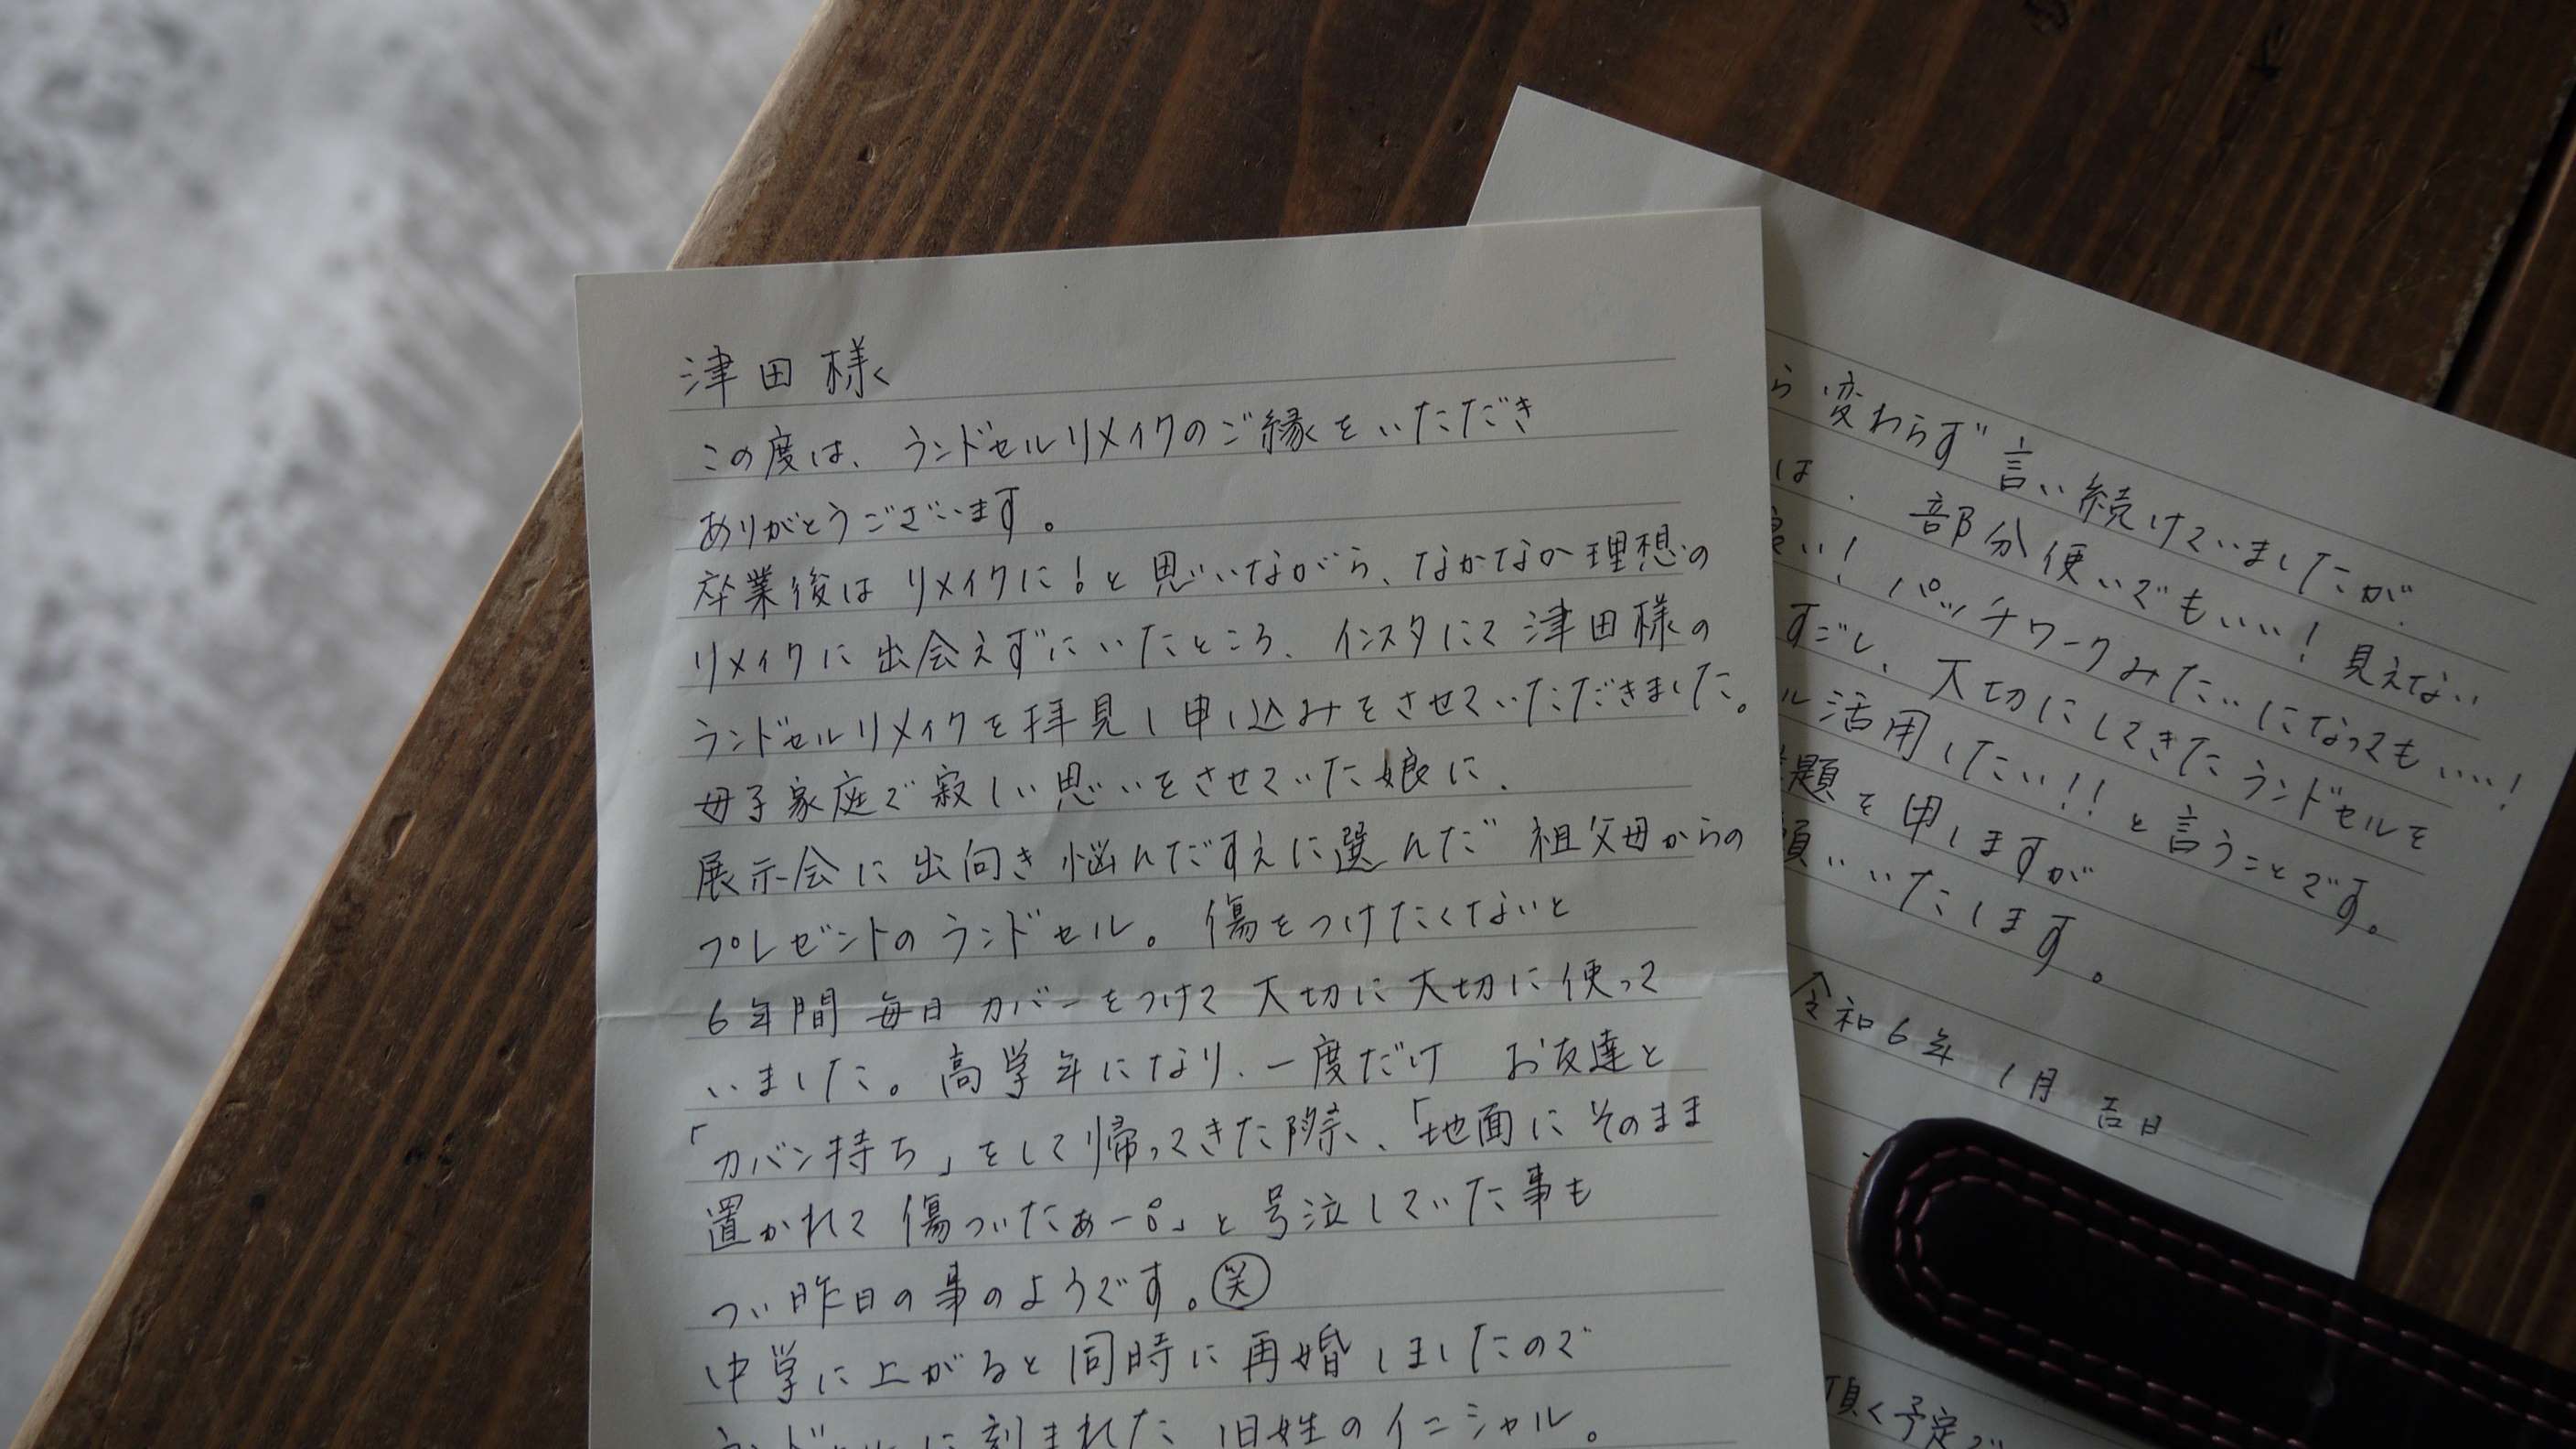 津田様へ
この度は、ランドセルリメイクのご縁をいただき
ありがとうございます。
卒業後はリメイクに!と思いながら、なかなか理想の
リメイクに出会えずにいたところ、インスタにて津田様の
ランドセルリメイクを拝見し申し込みをさせていただきました。
母子家庭で寂しい思いをさせていた娘に、
展示会に出向き悩んだすえに選んだ祖父母からの
プレゼントのランドセル。傷をつけたくないと
6年間毎日カバーをつけて大切に大切に使って
いました。高学年になり、一度だけ お友達と
「カバン持ち」をして帰ってきた際、「地面にそのまま
置かれて傷ついたぁー。」と号泣していた事も
つい昨日の事のようです。㊗笑
中学に上がると同時に再婚しましたので
ランドセルに刻まれた旧姓のイニシャル。
ら変わらず言い続けていましたが、
は、部分使いでもいい!見えない
良い!パッチワークみたいになってもいい!
すごし、大切にしてきたランドセルを
ル活用したい!!と言うことです。
題を申しますが
願いいたします。
令和6年 1月 吉日
頂く予定で